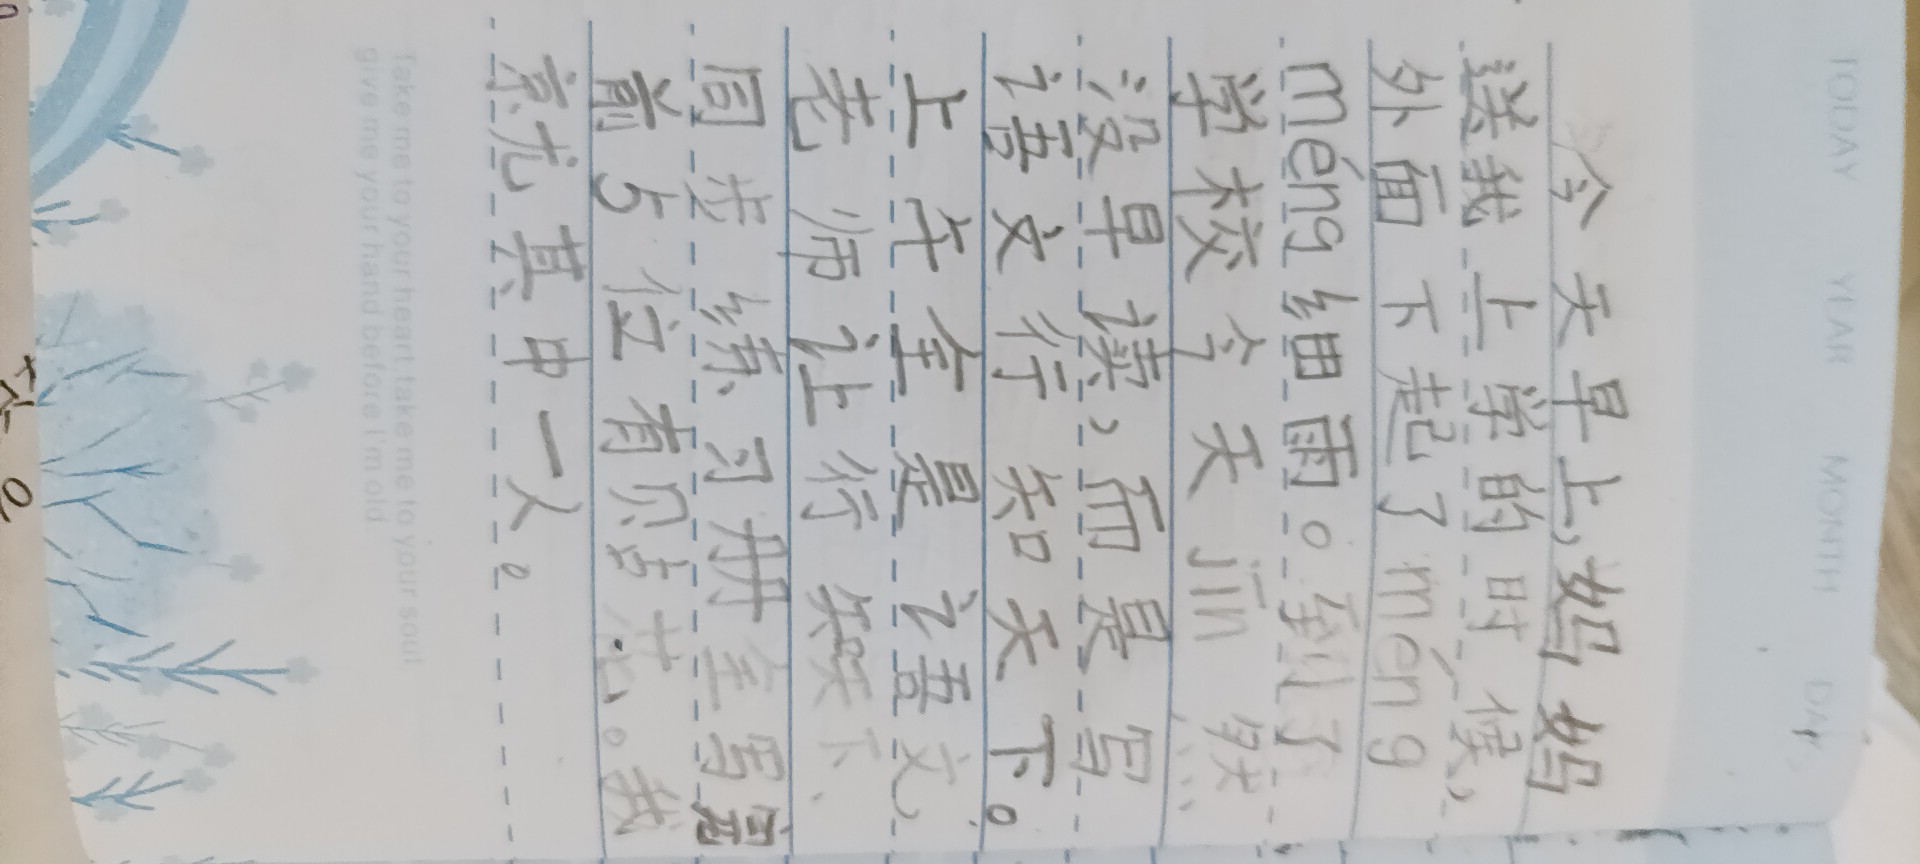 TODAY YEAR MONTH DAY
今天早上,妈妈
送我上学的时候,
外面下起了méng
méng细雨。到了
学校今天然
没早读,而是写
语文行知天下。
上午全是语文,
老师让行知天下、
同步练习册全写完
前5位有贴花。我
就其中一人。
Take me to your heart take me to your soul
give me your hand before I'm old